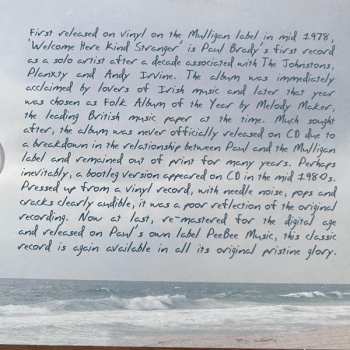 First released on vinyl on the Mulligan label in mid 1978,
'Welcome Here Kind Stranger' is Paul Brady's first record
as a solo artist after a decade associated with The Johnstons,
Planxty and Andy Irvine. The album was immediately
acclaimed by lovers of Irish music and later that year
was chosen as Folk Album of the Year by Melody Maker,
the leading British music paper at the time. Much sought
after, the album was never officially released on CD due to
a breakdown in the relationship between Paul and the Mulligan
label and remained out of print for many years. Perhaps
inevitably, a bootleg version appeared on CD in the mid 1980s.
Pressed up from a vinyl record, with needle noise, pops and
cracks clearly audible, it was a poor reflection of the original
recording. Now at last, re-mastered for the digital age
and released on Paul's own label PeeBee Music, this classic
record is again available in all its original pristine glory.